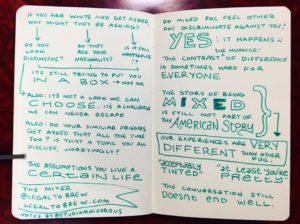 IF YOU ARE WHITE AND GET ASKED,
WHY MIGHT THEY BE ASKING?
DO YOU LOOK DISTINCTIVE?
DO THEY ASK YOUR NATIONALITY?
IS IT STILL HAPPENING
IT'S STILL TRYING TO PUT YOU
IN A BOX → NOT OK
ALSO: IT'S NOT A LOOK WE CAN
CHOOSE. IT'S A CHALLENGE
WE CAN NEVER ESCAPE
ALSO: DO YOUR SIMILAR FRIENDS
GET ASKED THIS ALL THE TIME
TOO? IS THAT A TOPIC YOU ALL
DISCUSS, WORRYINGLY?
THE ASSUMPTIONS YOU LIVE A
CERTAIN LIFE
THE MIXER
@LEGALTOBREW
LEGALTOBREW.COM
NOTES BY @STUDIOMNIVOROUS
DO MIXED POC FEEL OTHER
POC DISCRIMINATE AGAINST YOU?
YES: IT HAPPENS
THE NUANCE!
THE CONTRAST OF DIFFERENCE
IS SOMETIMES HARD FOR
EVERYONE
THE STORY OF BEING
MIXED
IS STILL NOT PART OF
THE AMERICAN STORY
OUR EXPERIENCES ARE VERY
DIFFERENT THAN OTHER
POC.
"ACCEPTABLY TINTED"
"AT LEAST YOU'RE PRETTY"
THE CONVERSATION STILL
DOESNT END WELL.